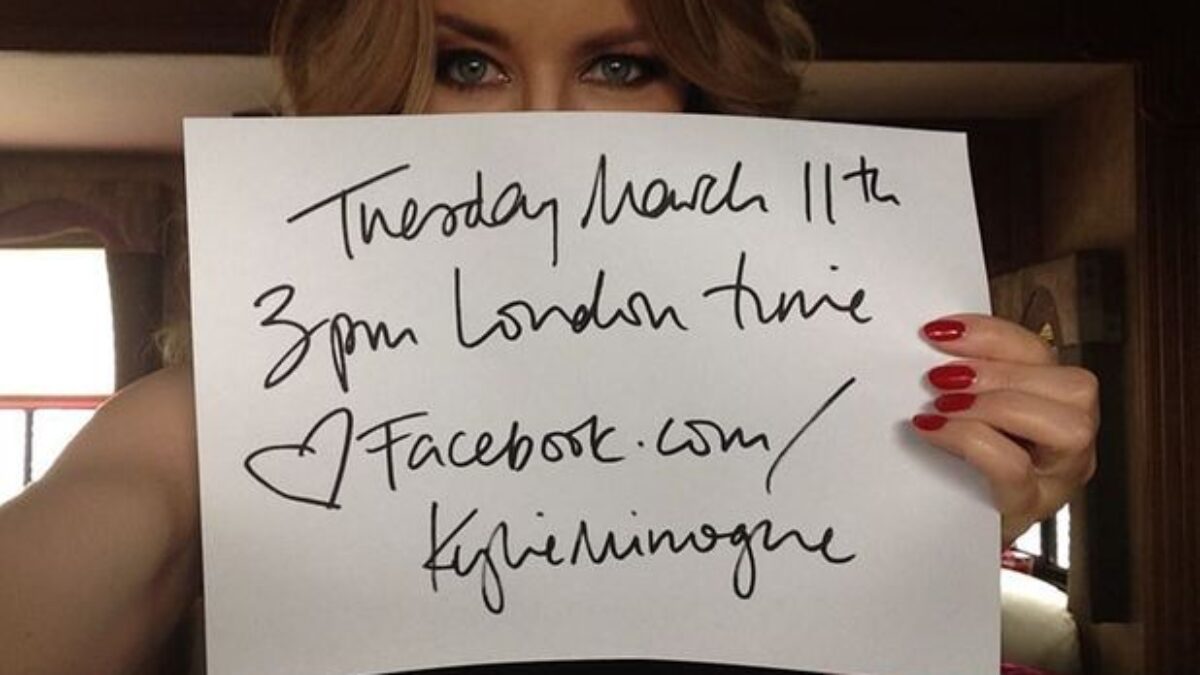 Tuesday March 11th
3pm London time
♡ Facebook.com/
KylieMinogue